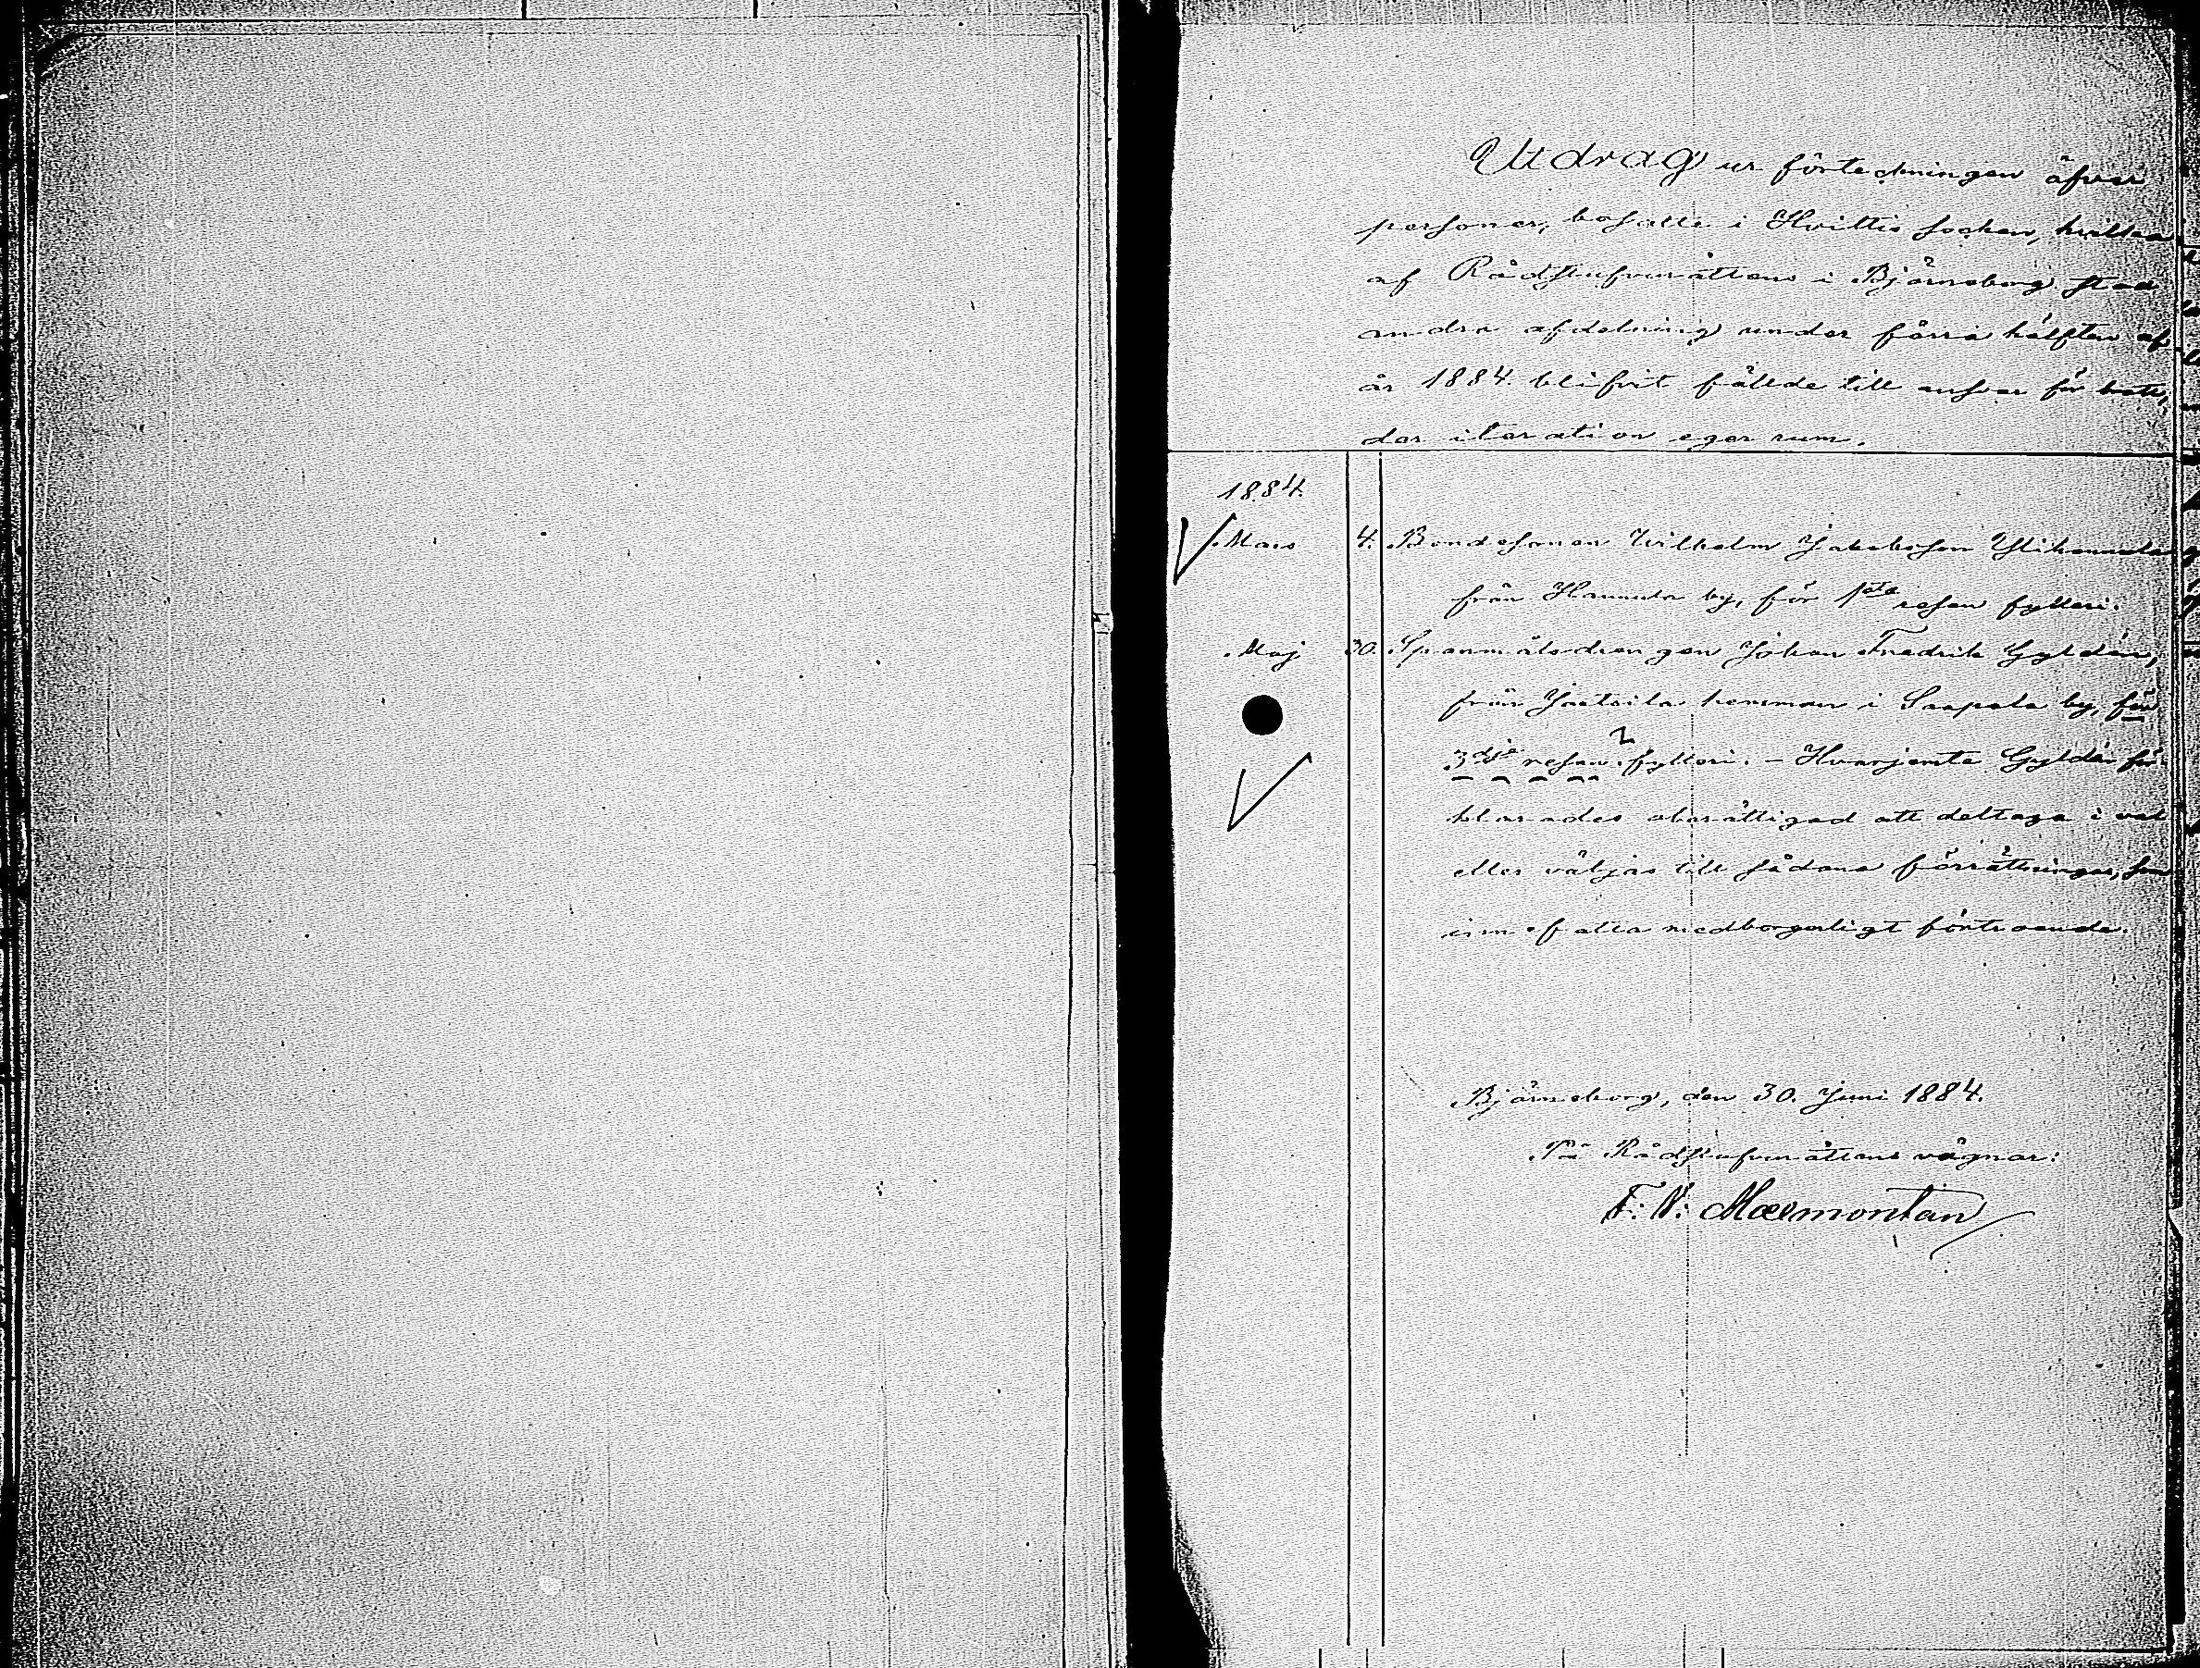 Utdrag ur förteckningen öfver
personer, bosatte i Hvittis socken, hvilka
af Rådstufvurättens i Björneborg stad
andra afdelning under förra hälften af
år 1884 blifvit fällde till ansvar för brott,
der iteration eger rum.
1884.
Mars 4. Bondesonen Wilhelm Jakobsson Ylihannula
från Hannula by, för 1sta resan fylleri.
Maj 30. Spanmålsdrengen Johan Fredrik Gyldén,
från Jaatsila hemman i Saapala by, för
3dje resan fylleri. – Hvarjemte Gyldén för-
klarades oberättigad att deltaga i val
eller väljas till sådana förrättningar, som
innefatta medborgerligt förtroende.
Björneborg, den 30. Juni 1884.
På Rådstufvurättens vägnar:
F. V. Marmontan